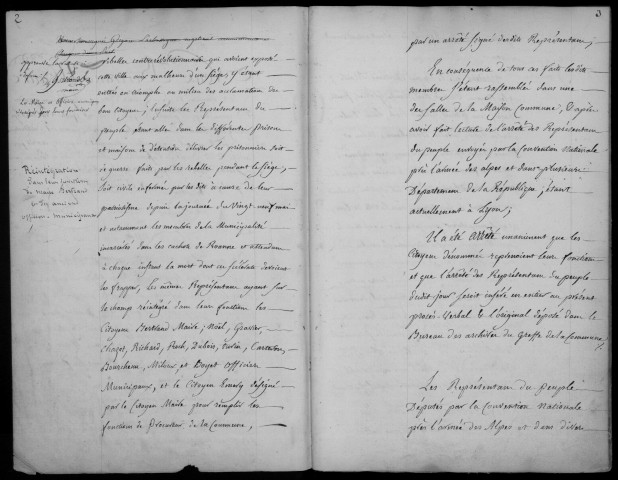 2
rebelles contrerévolutionnaires qui avoient exposé
cette ville aux malheurs d'un siège, s'étant
entrés en triomphe au milieu des acclamations des
bons citoyens; ensuite les Représentans du
peuple étant allé dans les différentes prisons
et maisons de détention délivrer les prisonniers soit
de guerre faits par les rebelles pendant le siège,
soit civils enfermés par les dits à cause de leur
patriotisme depuis la journée du vingt neuf mai
et notamment les membres de la Municipalité
incarcérés dans les cachots de Roanne et attendant
à chaque instant la mort dont ces scélérats devoient
les frapper, les mêmes Représentans ayant sur
le champ réintégré dans leurs fonctions les
Citoyens Bertrand Maire, Noël, Gravier,
Chazot, Richard, Roch, Dubois, Turin, Carteron,
Bourchenu, Milou et Boyet officiers
Municipaux, et le Citoyen désigné
par le Citoyen Maire pour remplir les
fonctions de Procureur de la Commune,
Réintégration
dans leurs fonctions
du maire Bertrand
et des anciens
officiers municipaux
3
par un arrêté signé desdits Représentans;
En conséquence de tous ces faits lesdits
membres s'étant rassemblés dans une
des salles de la Maison Commune, & après
avoir fait lecture de l'arrêté des Représentans
du peuple envoyés par la Convention Nationale
près l'armée des alpes et dans plusieurs
Départemens de la République, étant
actuellement à Lyon;
Il a été arrêté unanimement que les
Citoyens dénommés reprenoient leurs fonctions
et que l'arrêté des Représentans du peuple
dudit jour seroit inséré en entier au présent
procès-Verbal & l'original déposé dans le
Bureau des archives du Greffe de la Commune.
Les Représentans du Peuple
Députés par la Convention Nationale
près l'armée des Alpes et dans divers